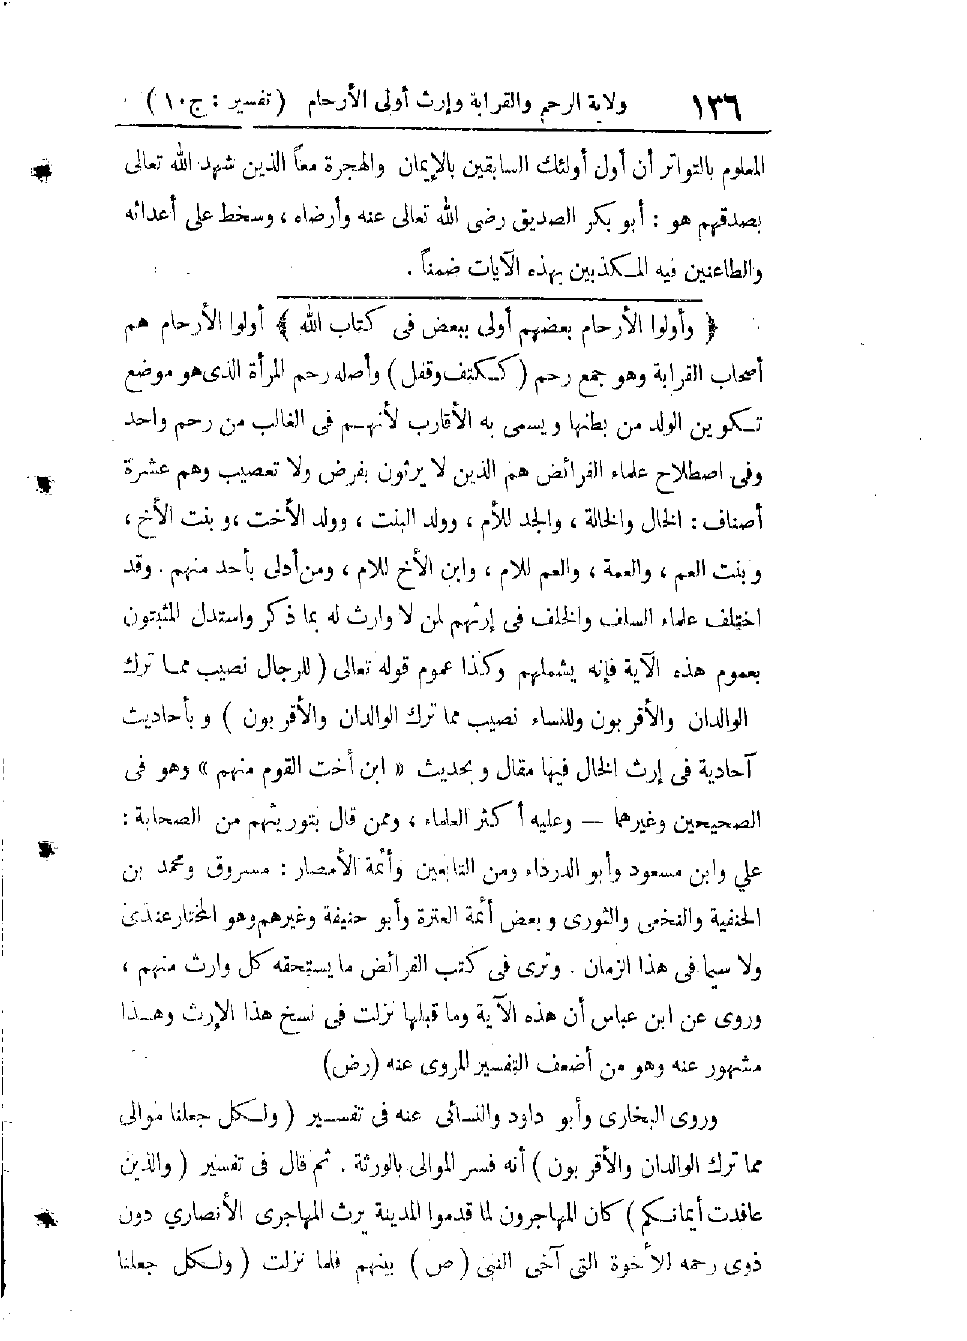 ١٣٦ ولاية الرحم والقرابة وإرث أولى الأرحام ( تفسير : ج ١٠ )
المعلوم بالتواتر أن أول أولئك السابقين بالإيمان والهجرة معاً الذين شهد الله تعالى
بصدقهم هو : أبو بكر الصديق رضى الله تعالى عنه وأرضاه ، وسخط على أعدائه
والطاعنين فيه المـكذبين بهذه الآيات ضمناً .
﴿ وأولوا الأرحام بعضهم أولى ببعض فى كتاب الله ﴾ أولوا الأرحام هم
أصحاب القرابة وهو جمع رحم ( كـكتف وقفل ) وأصله رحم المرأة الذى هو موضع
تـكوين الولد من بطنها ويسمى به الأقارب لأنهـم فى الغالب من رحم واحد
وفى اصطلاح علماء الفرائض هم الذين لا يرثون بفرض ولا تعصيب وهم عشرة
أصناف : الخال والخالة ، والجد للأم ، وولد البنت ، وولد الأخت ، وبنت الأخ ،
وبنت العم ، والعمة ، والعم للام ، وابن الأخ للام ، ومن أدلى بأحد منهم . وقد
اختلف علماء السلف والخلف فى إرثهم لمن لا وارث له بما ذكر واستدل المثبتون
بعموم هذه الآية فإنه يشملهم وكذا عموم قوله تعالى ( للرجال نصيب ممـا ترك
الوالدان والأقربون وللنساء نصيب مما ترك الوالدان والأقربون ) وبأحاديث
آحادية فى إرث الخال فيها مقال وبحديث « ابن أخت القوم منهم » وهو فى
الصحيحين وغيرهما — وعليه أكثر العلماء ، وممن قال بتوريثهم من الصحابة :
علي وابن مسعود وأبو الدرداء ومن التابعين وأئمة الأمصار : مسروق ومحمد بن
الحنفية والنخعى والثورى وبعض أئمة العترة وأبو حنيفة وغيرهم وهو المختار عندى
ولا سيما فى هذا الزمان . وترى فى كتب الفرائض ما يستحقه كل وارث منهم ،
وروى عن ابن عباس أن هذه الآية وما قبلها نزلت فى نسخ هذا الإرث وهـذا
مشهور عنه وهو من أضعف التفسير المروى عنه (رض)
وروى البخارى وأبو داود والنسائى عنه فى تفسـير ( ولـكل جعلنا موالى
مما ترك الوالدان والأقربون ) أنه فسر الموالى بالورثة . ثم قال فى تفسير ( والذين
عاقدت أيمانـكم ) كان المهاجرون لما قدموا المدينة يرث المهاجرى الأنصاري دون
ذوى رحمه للأخوة التى آخى النبى ( ص ) بينهم فلما نزلت ( ولـكل جعلنا